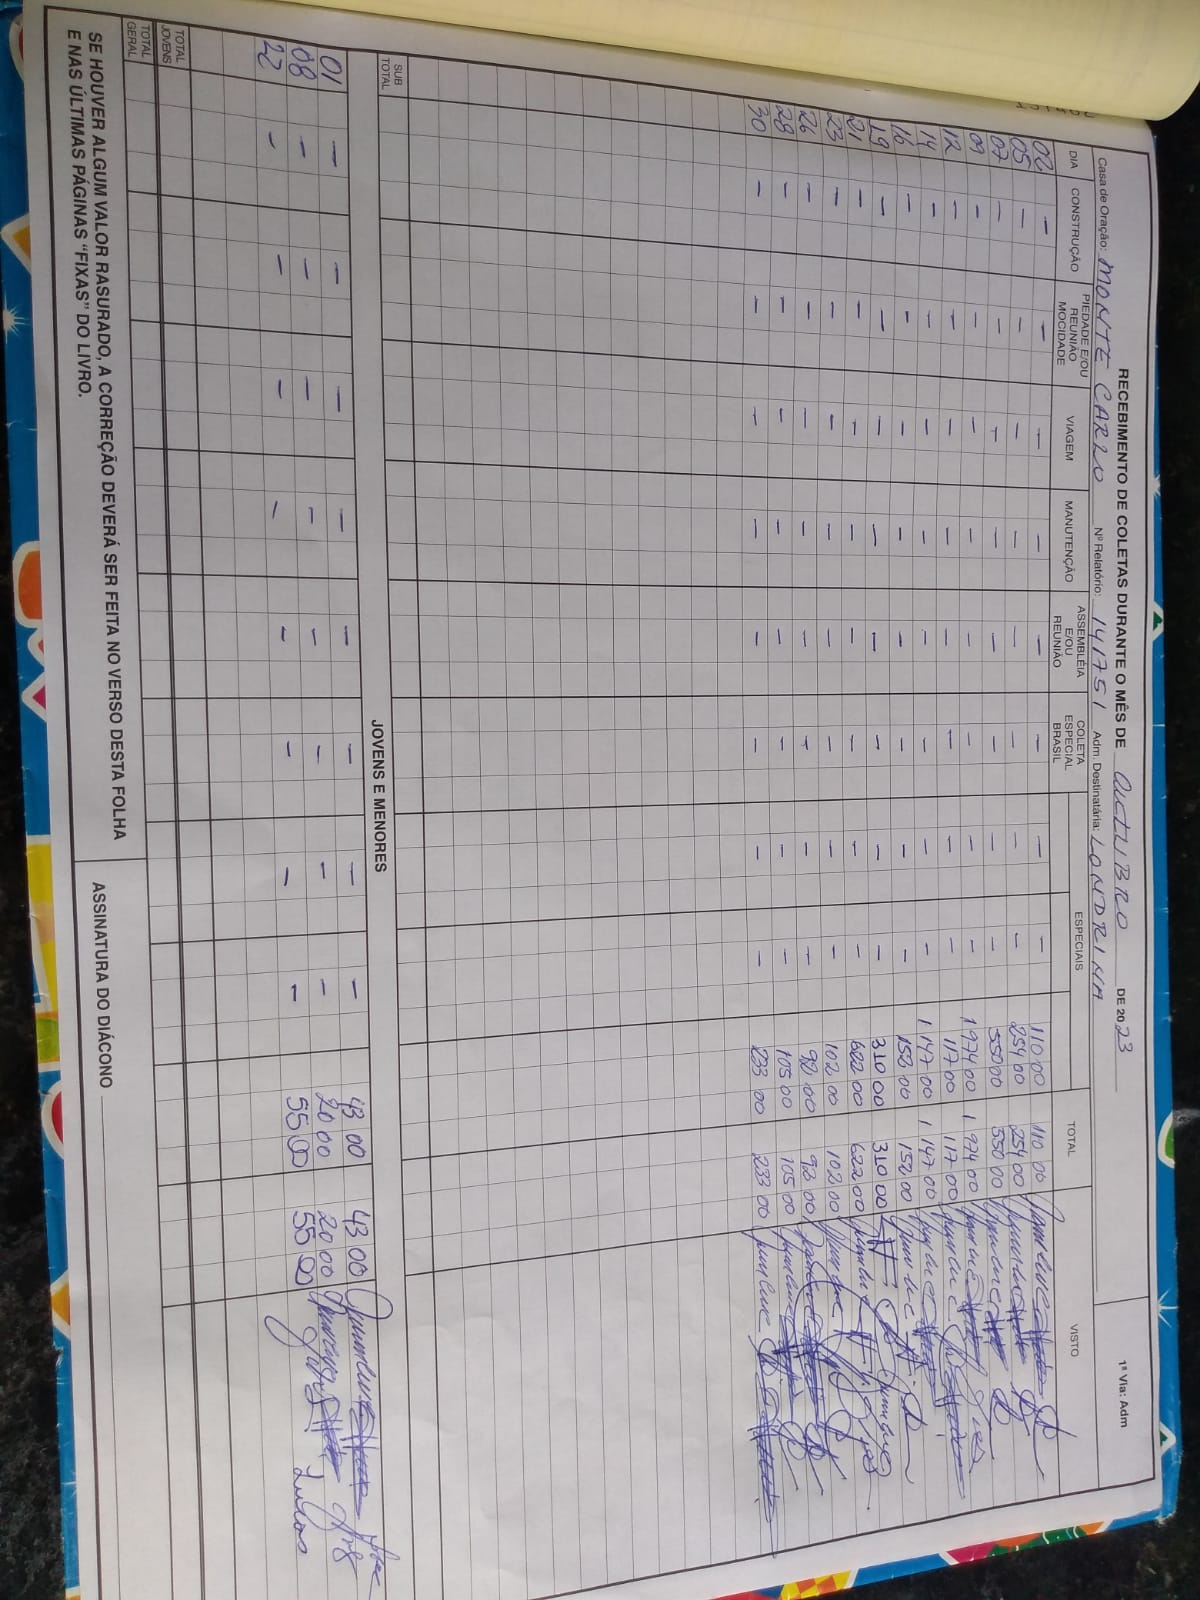 RECEBIMENTO DE COLETAS DURANTE O MÊS DE OUTUBRO DE 2023
1ª Via: Adm
Casa de Oração: MONTE CARLO Nº Relatório: 141751 Adm. Destinatária: LONDRINA
DIA CONSTRUÇÃO PIEDADE E/OU REUNIÃO MOCIDADE VIAGEM MANUTENÇÃO ASSEMBLÉIA E/OU REUNIÃO COLETA ESPECIAL BRASIL ESPECIAIS TOTAL VISTO
02 — — — — — — — — 110 00 110 00
05 — — — — — — — — 254 00 254 00
07 — — — — — — — — 550 00 550 00
09 — — — — — — — — 1 974 00 1 974 00
12 — — — — — — — — 117 00 117 00
14 — — — — — — — — 1 147 00 1 147 00
16 — — — — — — — — 152 00 152 00
19 — — — — — — — — 310 00 310 00
21 — — — — — — — — 622 00 622 00
23 — — — — — — — — 102 00 102 00
26 — — — — — — — — 92 00 92 00
28 — — — — — — — — 105 00 105 00
30 — — — — — — — — 233 00 233 00
SUB TOTAL
JOVENS E MENORES
01 — — — — — — — — 43 00 43 00
08 — — — — — — — — 20 00 20 00
22 — — — — — — — — 55 00 55 00 Lucas
TOTAL JOVENS
TOTAL GERAL
SE HOUVER ALGUM VALOR RASURADO, A CORREÇÃO DEVERÁ SER FEITA NO VERSO DESTA FOLHA
E NAS ÚLTIMAS PÁGINAS “FIXAS” DO LIVRO.
ASSINATURA DO DIÁCONO